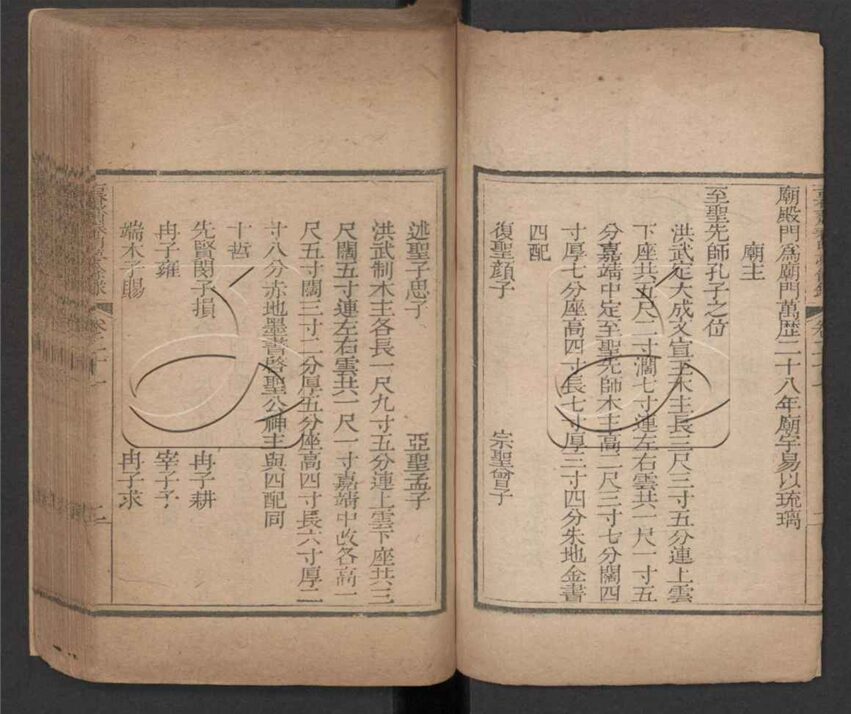 廟殿門爲廟門萬歷二十八年廟宇易以琉璃
廟主
至聖先師孔子之位
洪武定大成文宣王木主長三尺三寸五分連上雲
下座共五尺二寸濶七寸連左右雲共一尺一寸五
分嘉靖中定至聖先師木主高二尺三寸七分闊四
寸厚七分座高四寸長七寸厚三寸四分朱地金書
四配
復聖顔子 宗聖曾子
述聖子思子 亞聖孟子
洪武制木主各長一尺九寸五分連上雲下座共三
尺闊五寸連左右雲共一尺一寸嘉靖中改各高一
尺五寸闊三寸二分厚五分座高四寸長六寸厚二
寸八分赤地墨書啓聖公神主與四配同
十哲
先賢閔子損 冉子耕
冉子雍 宰子予
端木子賜 冉子求